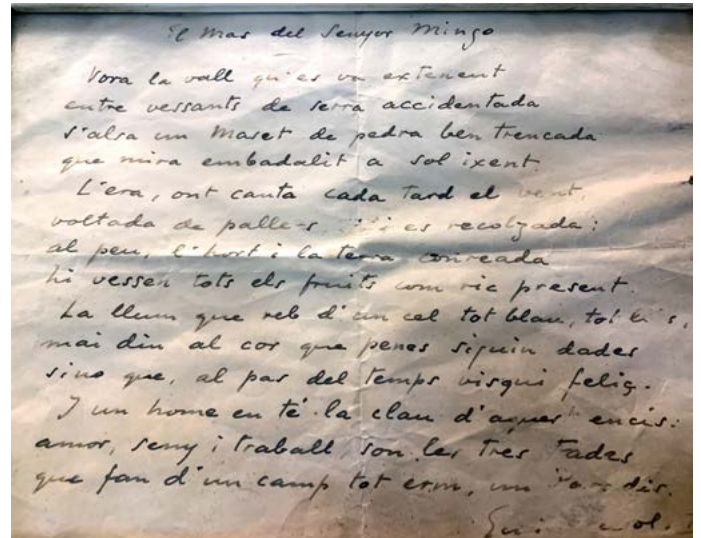 El Mas del Senyor Mingo
Vora la vall qu'es va extenent
entre vessants de serra accidentada
s'alsa un Maset de pedra ben trencada
que mira embadalit a sol ixent.
L'era, ont canta cada tard el vent,
voltada de pallers, es recolzada:
al peu, l'hort i la terra conreada
hi vessen tots els fruits com ric present.
La llum que reb d'un cel tot blau, tot
mai diu al cor que penes siguin dades
sino que, al pas del temps visqui feliç.
I un home en té la clau d'aquest encis:
amor, seny i traball son les tres fades
que fan d'un camp tot erm, un Paradis.